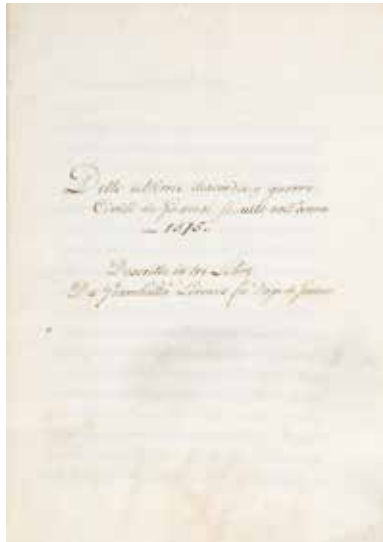 Delle ultime discordie e guerre
Civili di Genova seguite nell'anno
1575.
Descritte in tre Libri
Da Giambatta Lercaro fù Doge di Genova